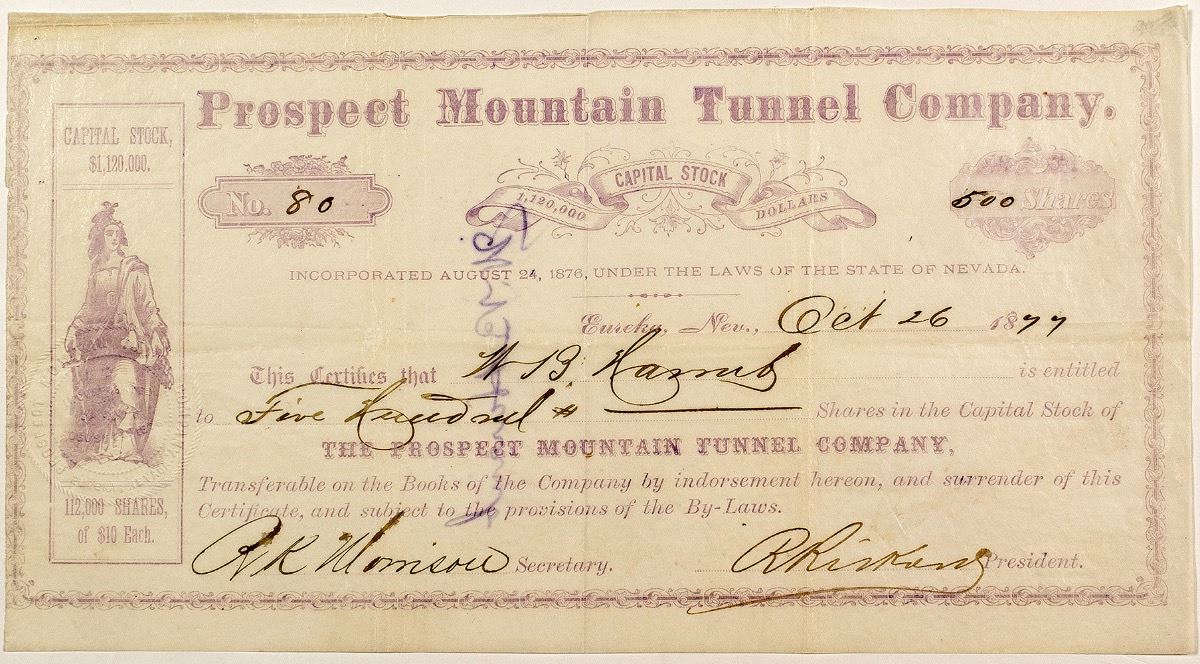 Prospect Mountain Tunnel Company.
CAPITAL STOCK,
$1,120,000.
No. 80
CAPITAL STOCK
1,120,000 DOLLARS
500 Shares
INCORPORATED AUGUST 24, 1876, UNDER THE LAWS OF THE STATE OF NEVADA.
Eureka, Nev., Oct 26 1877
This Certifies that W B. is entitled
to Five Hundred Shares in the Capital Stock of
THE PROSPECT MOUNTAIN TUNNEL COMPANY,
Transferable on the Books of the Company by indorsement hereon, and surrender of this
Certificate, and subject to the provisions of the By-Laws.
112,000 SHARES,
of $10 Each.
R K Morrison Secretary.
President.